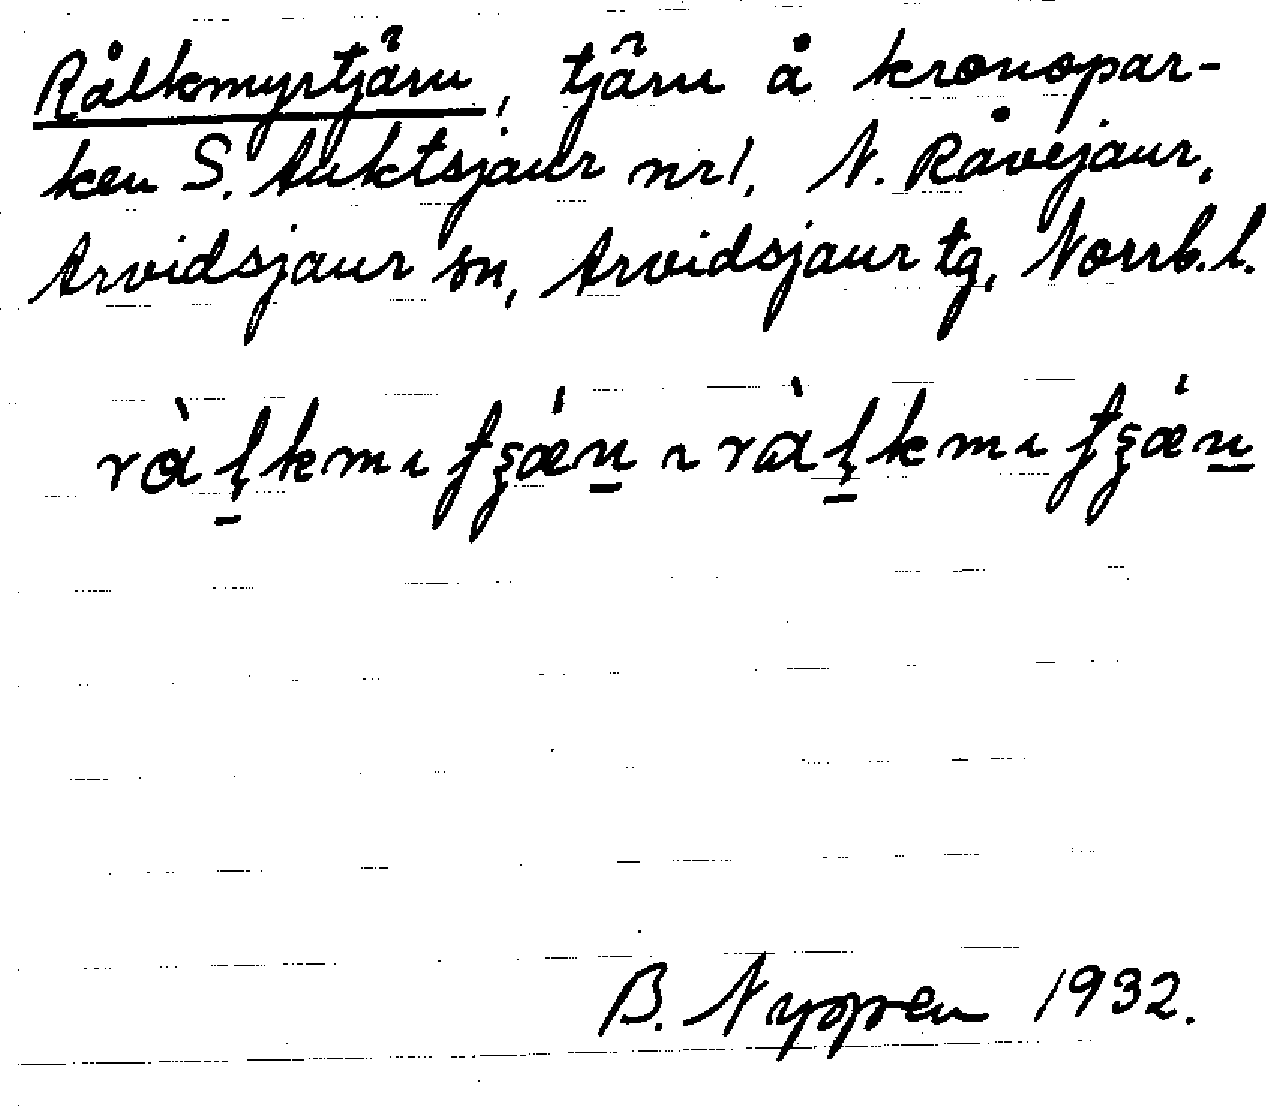 Rålkmyrtjärn, tjärn å kronopar-
ken S. Auktsjaur nr 1, N. Råvejaur,
Arvidsjaur sn, Arvidsjaur tg, Norrb. l.
B. Nyppen 1932.